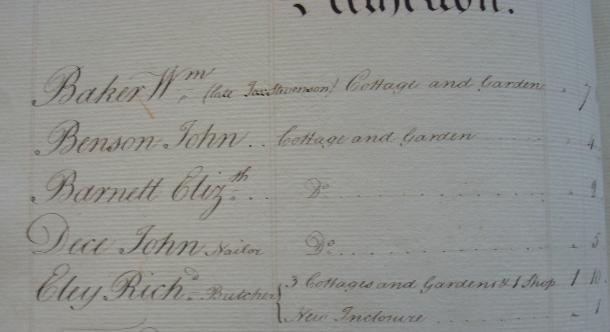 Baker Wm (late Jas Stevenson) Cottage and Garden 7
Benson John Cottage and Garden 4
Barnett Elizth Do 2
Dece John Nailor Do 5
Eley Richd Butcher 3 Cottages and Gardens & 1 Shop 1 10
New Inclosure 1